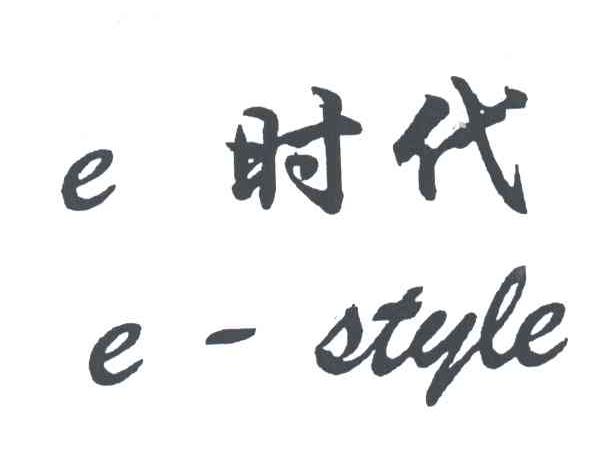 e 时代
e - style